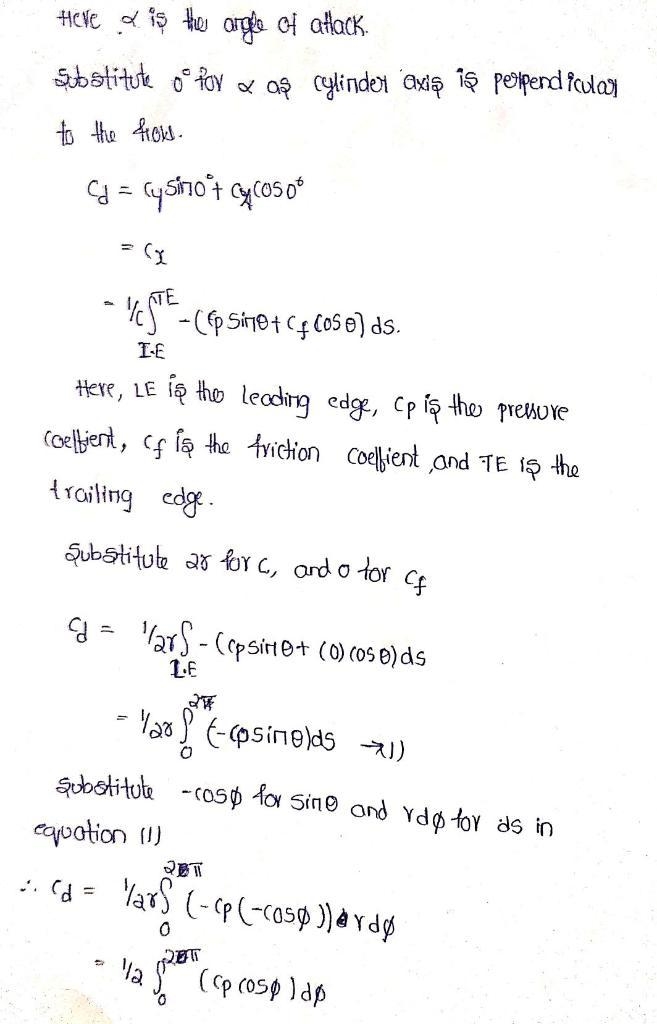 Here α is the angle of attack.
Substitute 0° for α as cylinder axis is perpendicular
to the flow.
Cd = Cy sin0° + Cx cos0°
= Cx
= 1/c ∫ TE LE -(Cp sinθ + Cf cosθ) ds.
Here, LE is the leading edge, Cp is the pressure
coeffient, Cf is the friction coeffient, and TE is the
trailing edge.
Substitute 2r for c, and 0 for Cf
Cd = 1/2r ∫ L.E -(Cp sinθ + (0) cosθ) ds
= 1/2r ∫ 2π 0 (-Cp sinθ) ds → 1)
Substitute -cosφ for sinθ and rdφ for ds in
equation (1)
∴ Cd = 1/2r ∫ 2π 0 (-Cp (-cosφ)) rdφ
= 1/2 ∫ 2π 0 (Cp cosφ) dφ